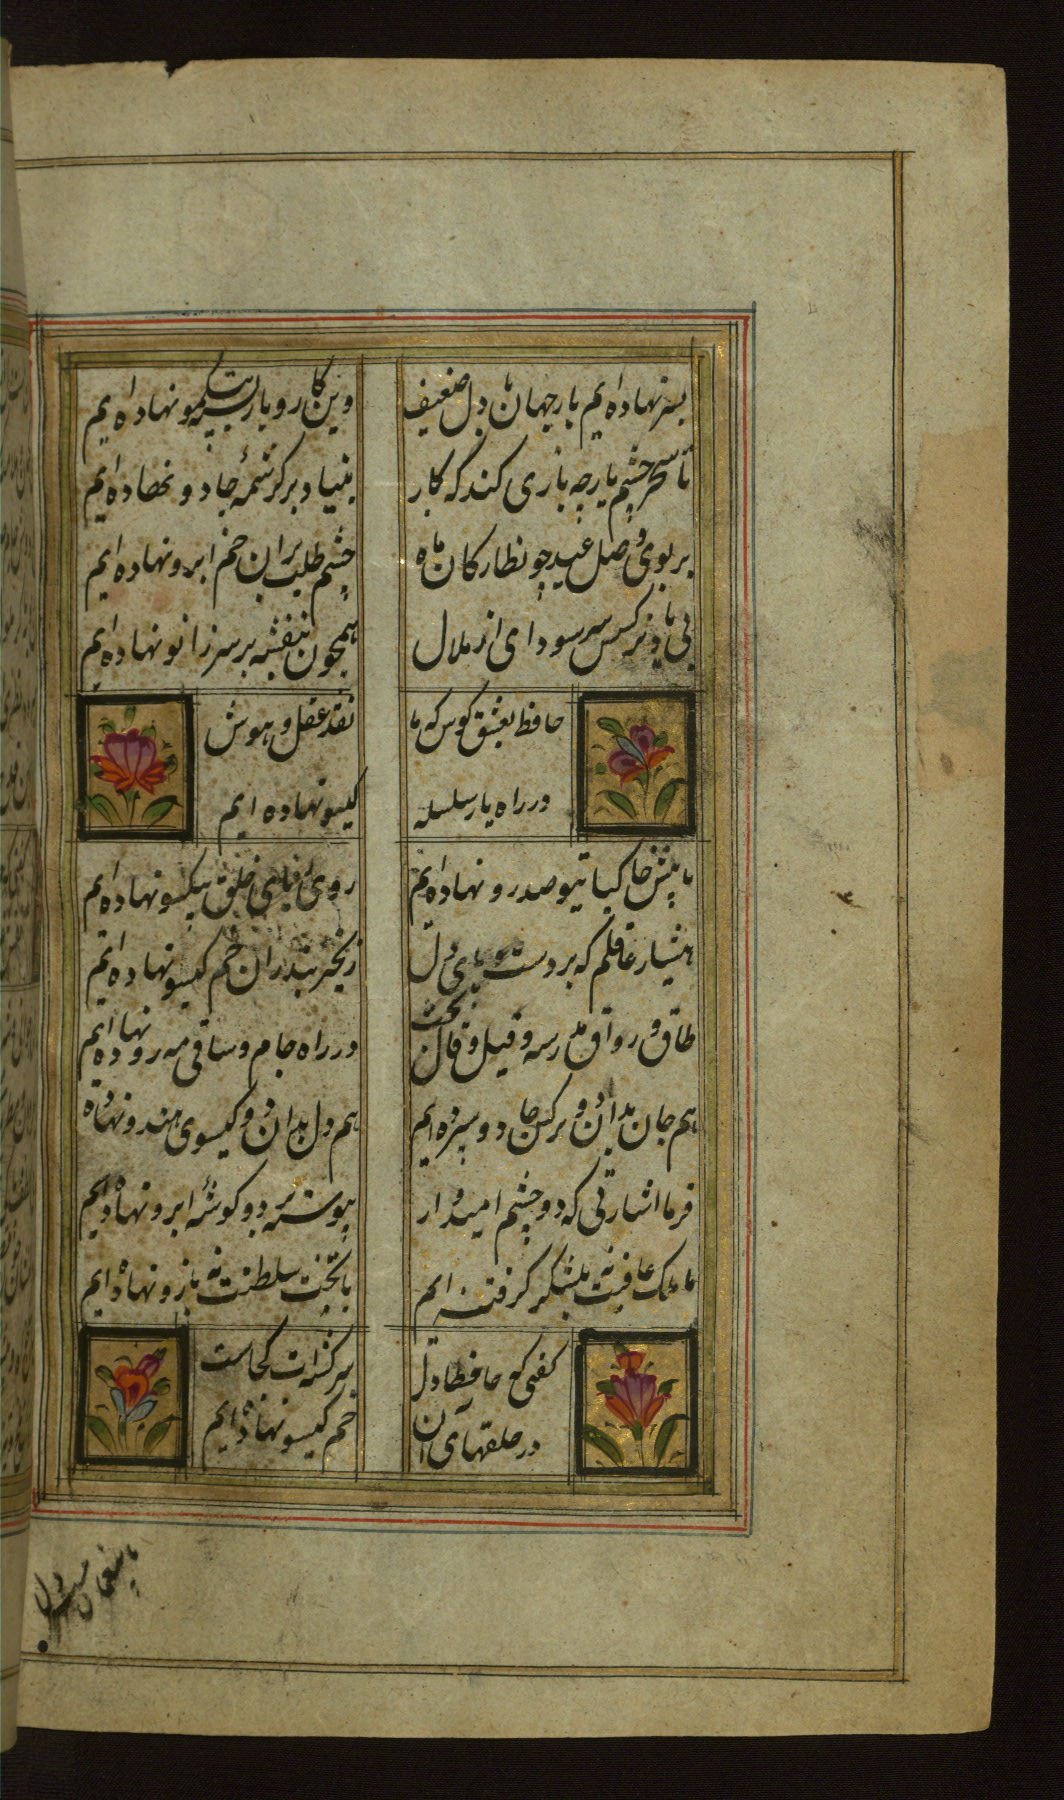 بسر نهاده ایم بار جهان با دل ضعیف
وین کار و بار بسته بیکمو نهاده ایم
تا سحر چشم یار چه بازی کند که کار
بنیاد بر کرشمه جادو نهاده ایم
بر بوی وصل عید چو نظارگان ماه
چشم طلب بران خم ابرو نهاده ایم
بی یاد نرکس سر سودای از ملال
همچون بنفشه بر سر زانو نهاده ایم
حافظ بعشق کوش که ما
در راه یار سلسله
نقد عقل و هوش
کیسو نهاده ایم
ما پیش خاک پای تو صد رو نهاده ایم
روی و ریای خلق بیکسو نهاده ایم
هشیار عاقلم که بر دست و پای دل
زنجیر بند زان خم کیسو نهاده ایم
طاق و رواق مدرسه و قیل و قال بحث
در راه جام و ساقی مه رو نهاده ایم
هم جان بدان دو نرکس جادو سپرده ایم
هم دل بدان دو کیسوی هندو نهاده
فرما اشارتی که دو چشم امیدوار
پیوسته بر دو کوشه ابرو نهاده ایم
ما ملک عافیت نه بلشکر کرفته ایم
ما تخت سلطنت نه ببازو نهاده ایم
کفتی که حافظا دل
در حلقهای آن
سرکشتهات کجاست
خم کیسو نهاده ایم